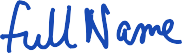 Full Name